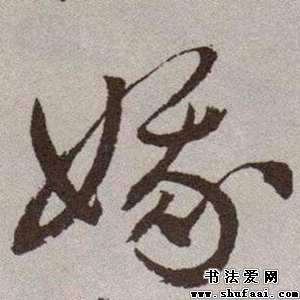 娥
书法爱网
www.shufaai.com